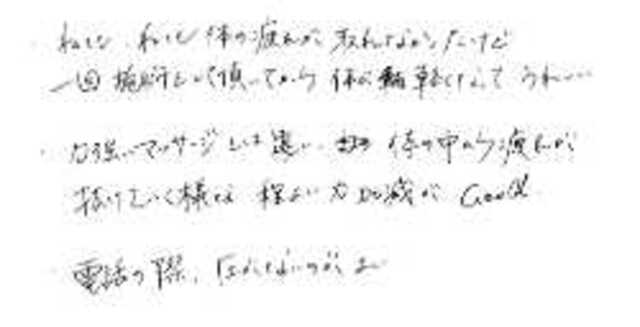 ・ねても、ねても体の疲れが取れなかったけど
一回施術して頂いてから体が軽くなって うれしい
・力強いマッサージとは違い、体の中から疲れが
抜けていく様な 程よい力加減が Good
・電話の際、